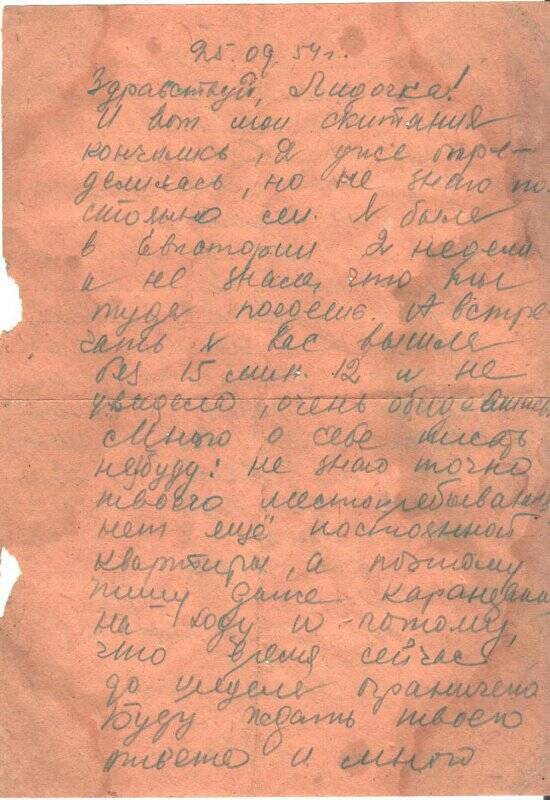 25.09.54г.
Здравствуй, Лидочка!
И вот мои скитания
кончились, Я уже опре-
делилась, но не знаю по
стоянно ли. Я была
в Евпатории 2 недели
и не знала, что ты
туда поедешь. А встре
чать я вас вышла
без 15 мин. 12 и не
увидела, очень
Много о себе писать
не буду: не знаю точно
твоего местопребывания
нет ещё постоянной
квартиры, а поэтому
пишу даже карандашом
на ходу и потому,
что время сейчас
до ограничено
Буду ждать твоего
ответа и много